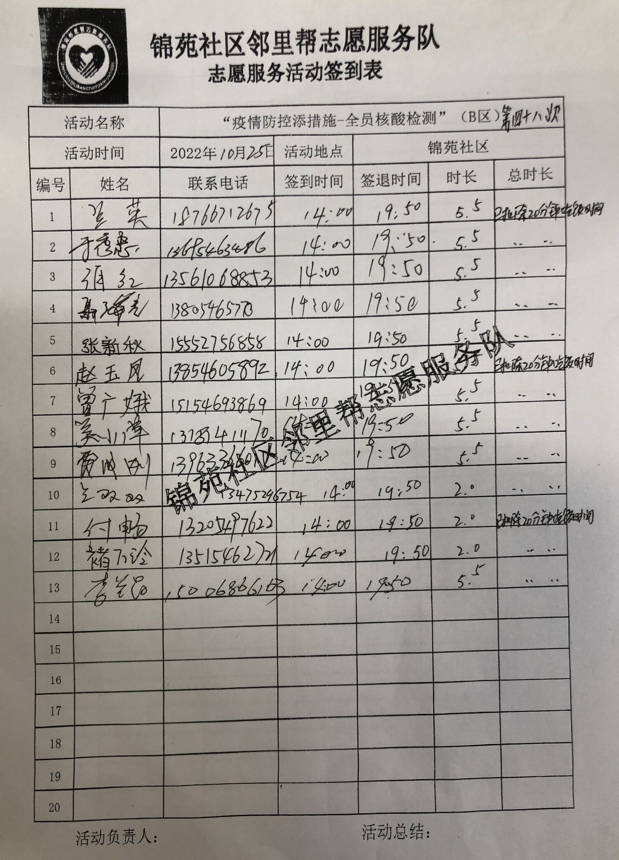 锦苑社区邻里帮志愿服务队
志愿服务活动签到表
活动名称 “疫情防控添措施-全员核酸检测”（B区）第四十八次
活动时间 2022年10月25日 活动地点 锦苑社区
编号 姓名 联系电话 签到时间 签退时间 时长 总时长
1 兰英 18766712675 14:00 19:50 5.5 已扣除20分钟吃饭时间
2 14:00 19:50. 5.5 〃 〃
3 13561068853 14:00 19:50 5.5 〃 〃
4 14:00 19:50 5.5 〃 〃
5 张新秋 15552756858 14:00 19:50 5.5 〃 〃
6 赵玉凤 13854605892 14:00 19:50 已扣除20分钟吃饭时间
7 曾广娥 15154693869 14:00 19:50 5.5 〃 〃
8 19:50 5.5 〃 〃
9 14:00 19:50 5.5 〃 〃
10 13475296754 14:00 19:50 2.0 〃 〃
11 付畅 13205497622 14:00 19:50 2.0 已扣除20分钟吃饭时间
12 14:00 19:50 2.0 〃 〃
13 14:00 19:50 5.5 〃 〃
14
15
16
17
18
19
20
活动负责人： 活动总结：
锦苑社区邻里帮志愿服务队